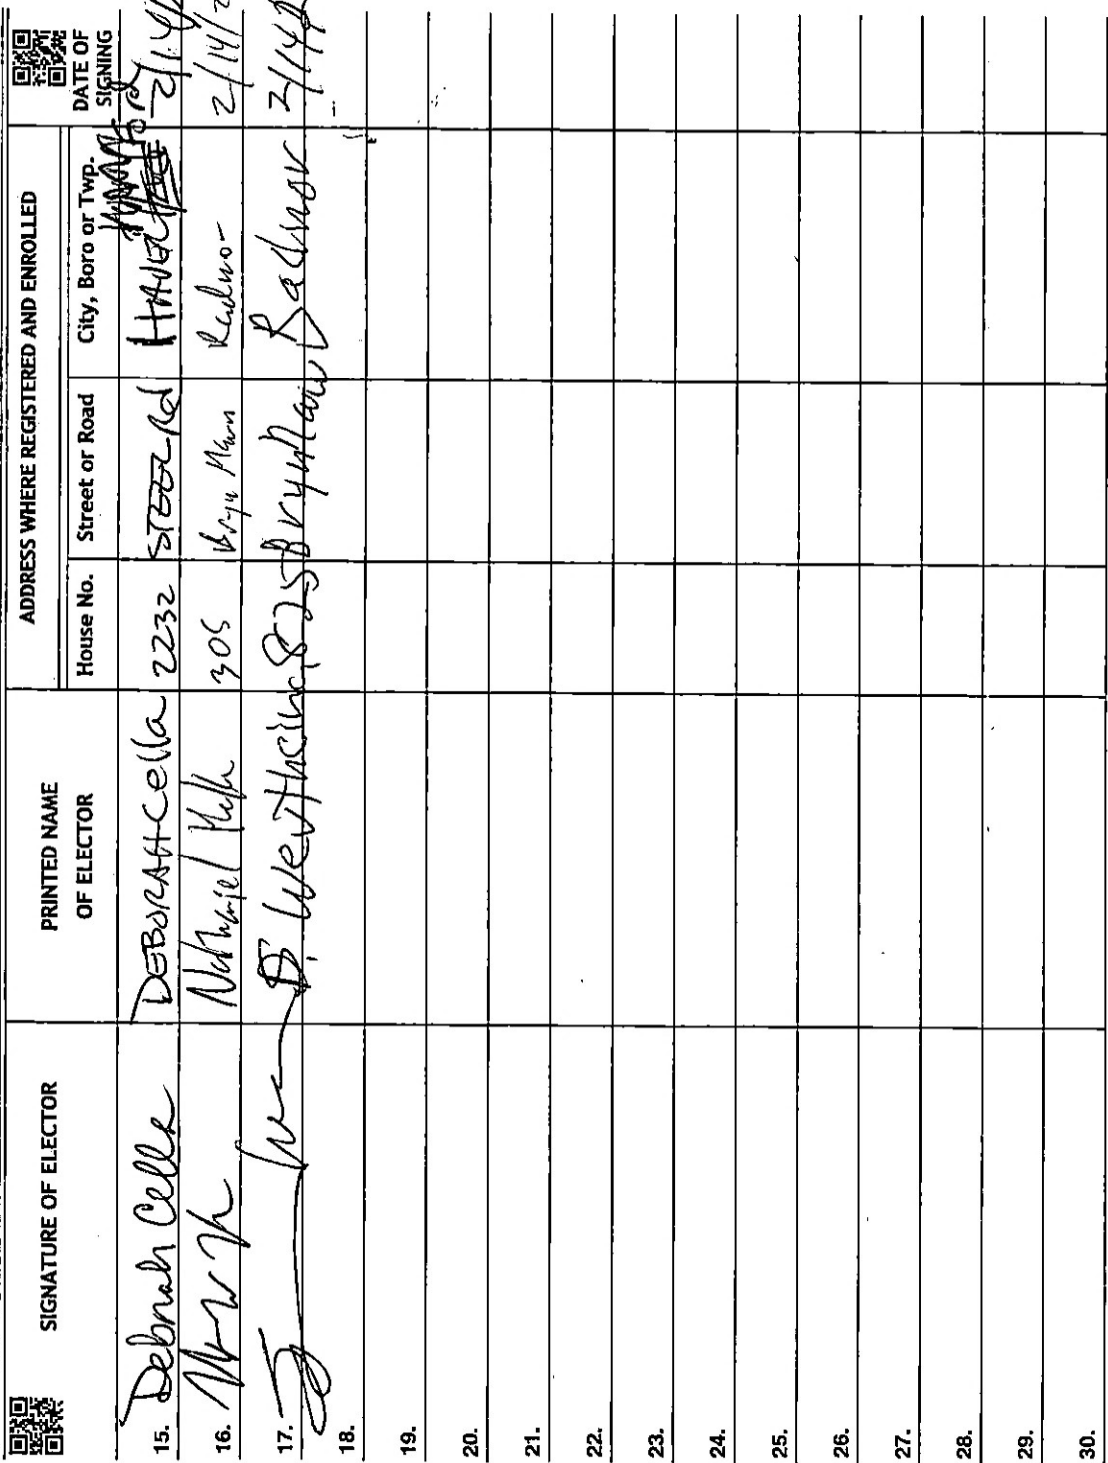 SIGNATURE OF ELECTOR
PRINTED NAME
OF ELECTOR
ADDRESS WHERE REGISTERED AND ENROLLED
House No.
Street or Road
City, Boro or Twp.
DATE OF
SIGNING
15. Deborah Cella DEBORAH Cella 2232 STEEL Rd 2/14/
16. Nathaniel 305 Bryn Mawr Radnor 2/14/2
17. Wertheimer 825 Bryn Mawr Radnor 2/14/
18.
19.
20.
21.
22.
23.
24.
25.
26.
27.
28.
29.
30.